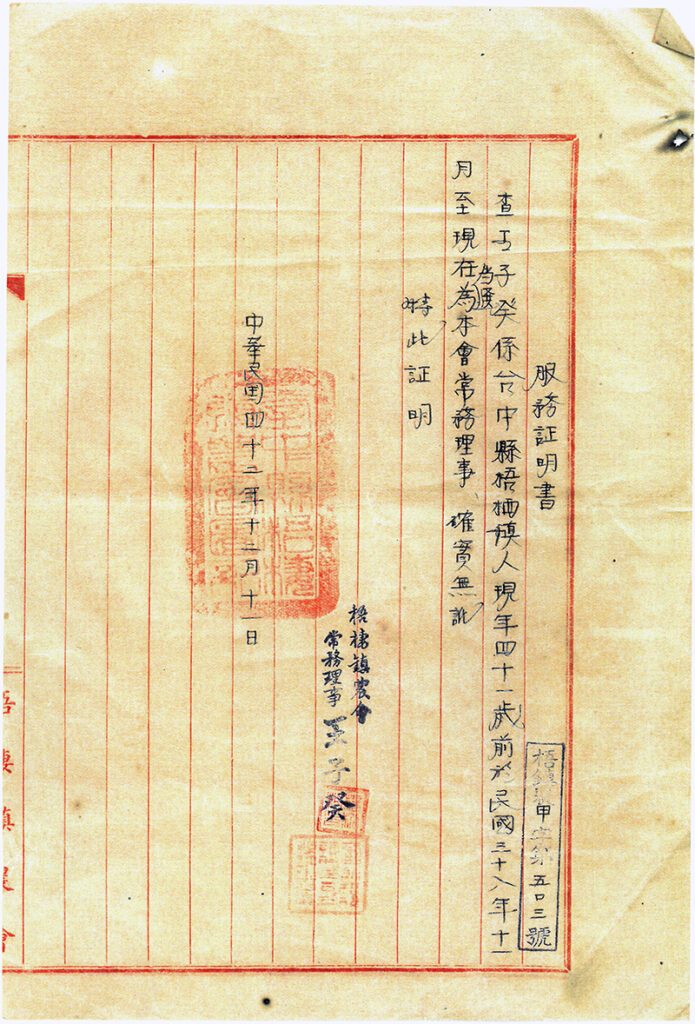 服務証明書
梧鎮農甲字第五〇三號
查王子癸係台中縣梧栖鎮人現年四十一歲前於民國三十八年十一
月至現在為本會常務理事、確實無訛
当選
特此証明
梧棲鎮農會
常務理事 王子癸
中華民國四十二年十二月十一日
梧棲鎮農會